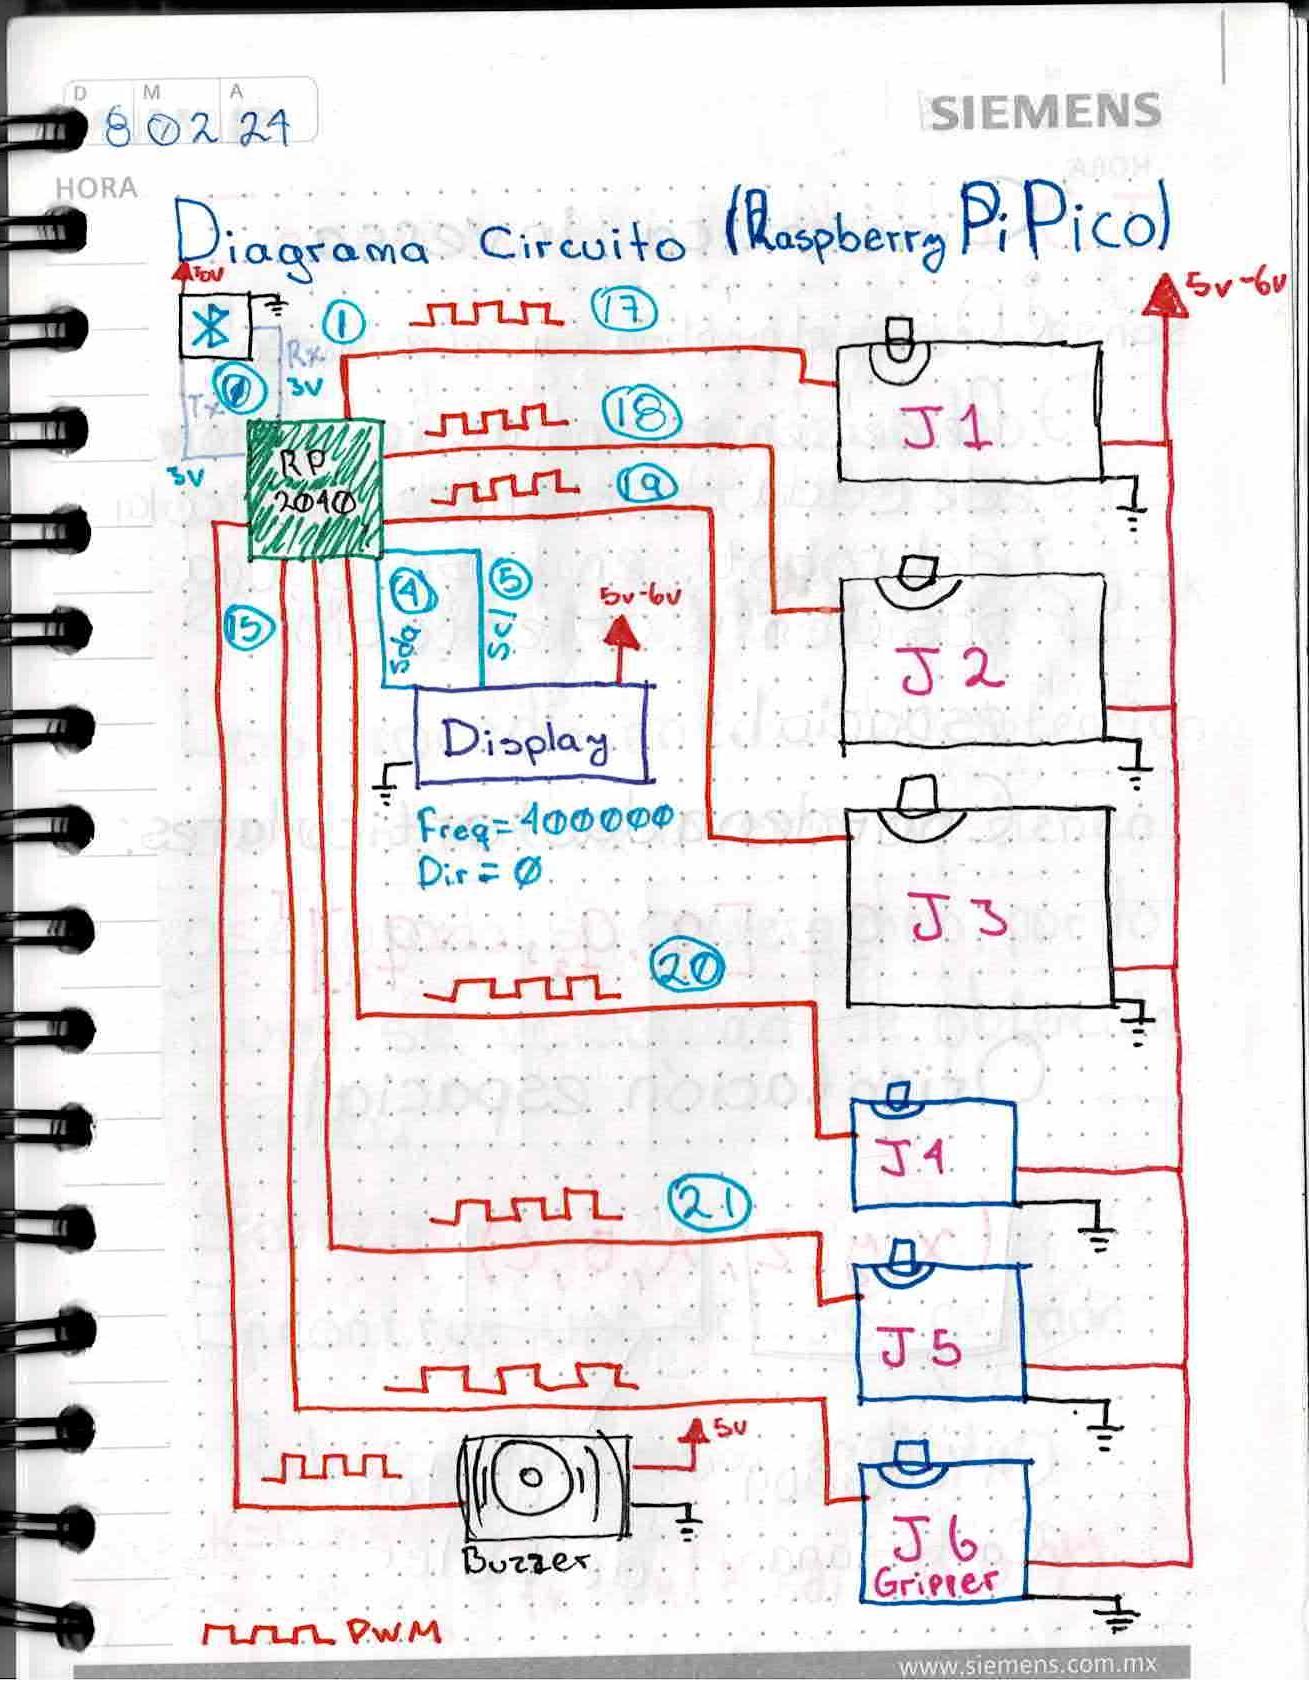 D M A
8 02 24
SIEMENS
HORA
Diagrama Circuito (Raspberry Pi Pico)
5v-6v
1
17
Rx
3v
0
Tx
3v
18
J1
RP
2040
19
15
4
5
Sda
Scl
5v-6v
J2
Display
Freq=400000
Dir=0
J3
20
J4
21
J5
5v
J6
Gripper
Buzzer
PWM
www.siemens.com.mx